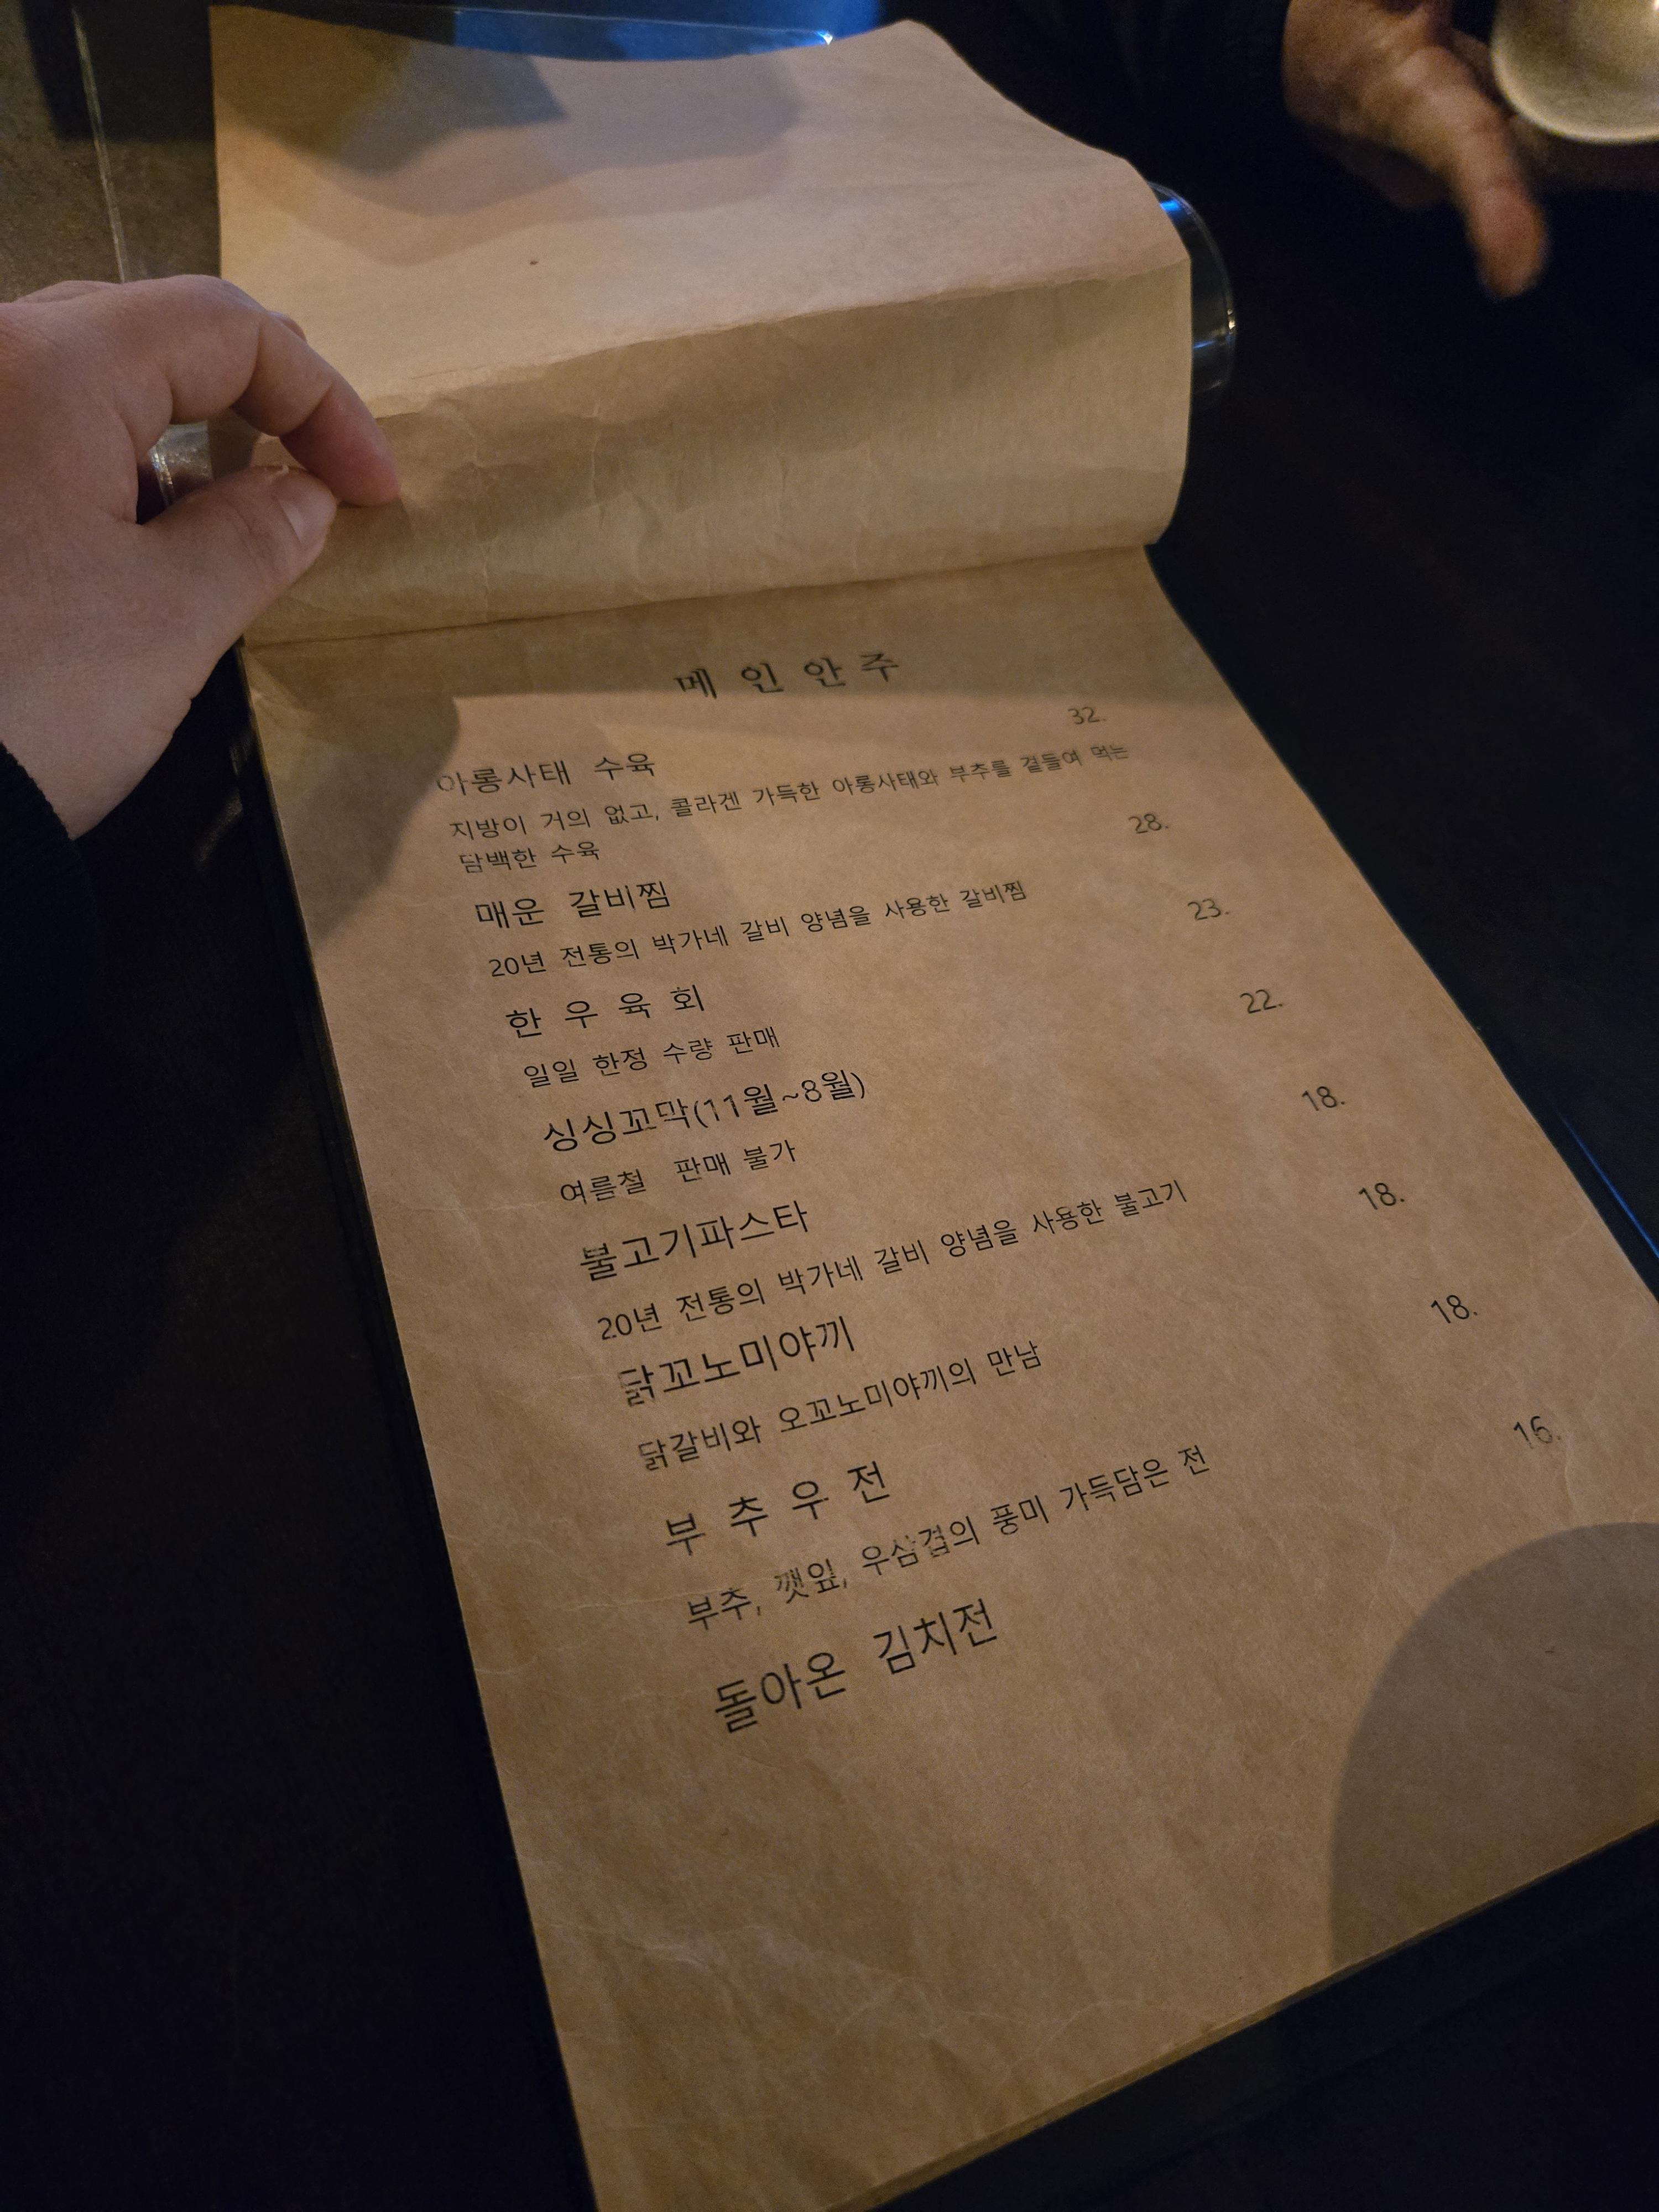 메인안주
아롱사태 수육 32.
지방이 거의 없고, 콜라겐 가득한 아롱사태와 부추를 곁들여 먹는
담백한 수육
매운 갈비찜 28.
20년 전통의 박가네 갈비 양념을 사용한 갈비찜
한우육회 23.
일일 한정 수량 판매
싱싱꼬막(11월~8월) 22.
여름철 판매 불가
불고기파스타 18.
20년 전통의 박가네 갈비 양념을 사용한 불고기
닭꼬노미야끼 18.
닭갈비와 오꼬노미야끼의 만남
부추우전 18.
부추, 깻잎, 우삼겹의 풍미 가득담은 전
돌아온 김치전 16.